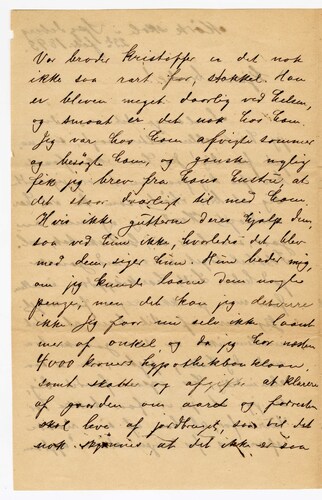 Vor broder Kristoffer er det nok
ikke saa rart for, stakkel. Han
er bleven meget daarlig ved helsen,
og smaat er det nok hos ham.
Jeg var hos ham afvigte sommer
og besøgte ham, og ganske nylig
fik jeg brev fra hans hustru, at
det staar daarligt til med ham.
Hvis ikke gutterne deres hjalp dem,
saa ved hun ikke, hvorledes det blev
med dem, siger hun. Hun beder mig,
om jeg kunde laane dem nogle
penge, men det kan jeg desværre
ikke Jeg faar nu selv ikke laant
mer af onkel, og da jeg har næsten
4000 kroners hypothekbanklaan
samt skatter og afgifter at klarere
af gaarden om aaret og forresten
skal leve af jordbruget, saa vil det
nok skjønnes at det ikke er saa